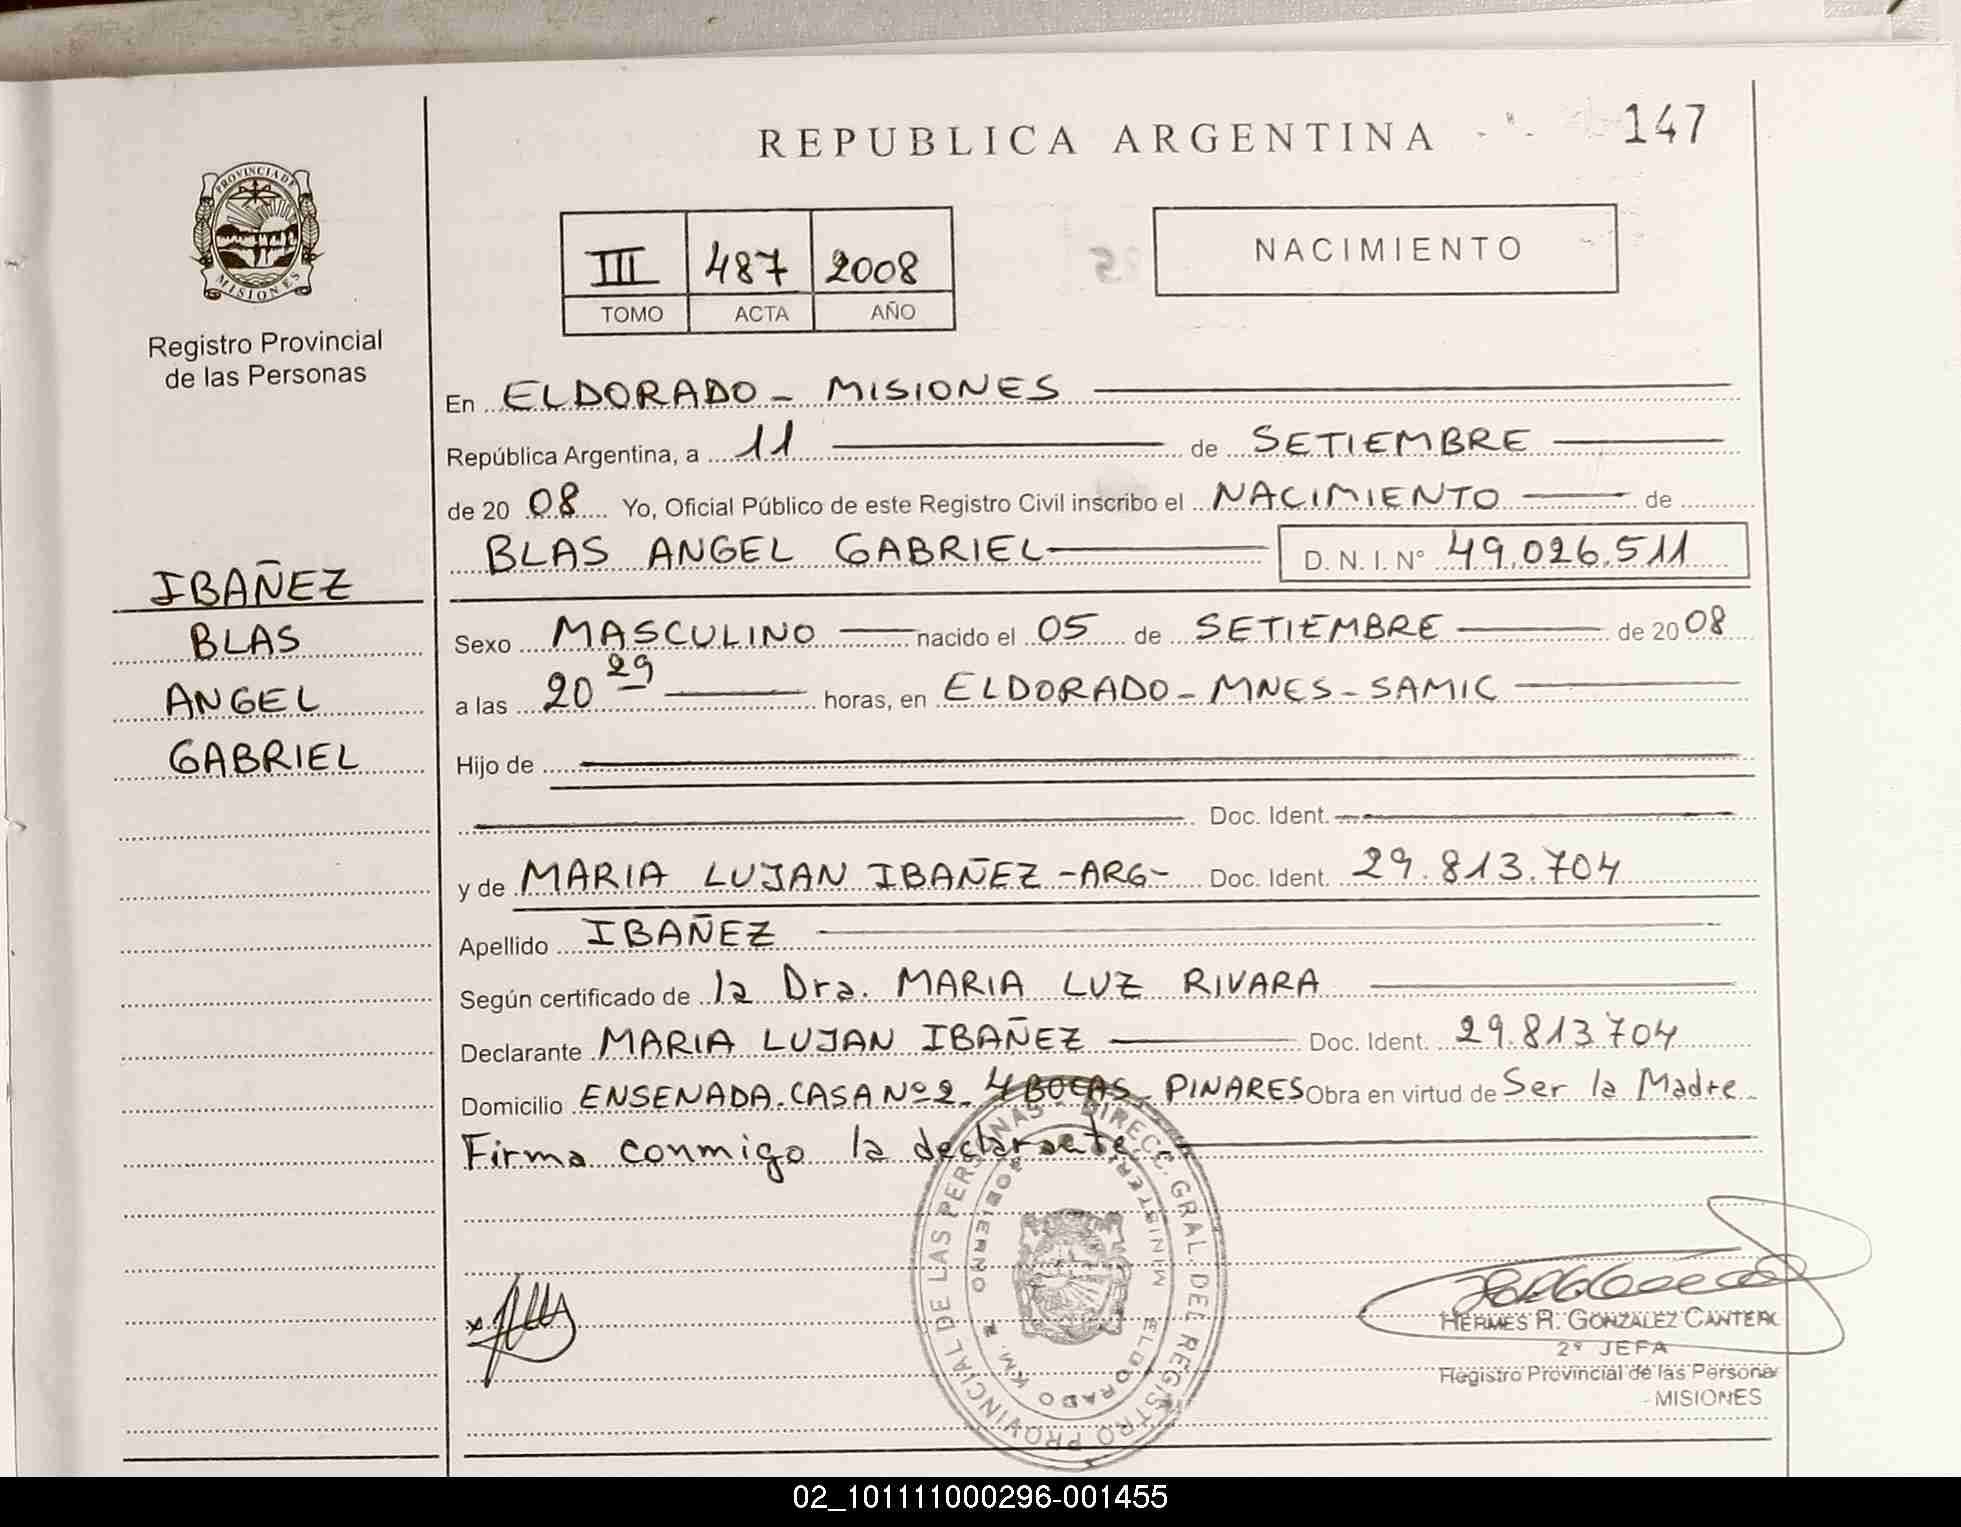 REPUBLICA ARGENTINA
147
PROVINCIA DE
MISIONES
Registro Provincial
de las Personas
III 487 2008
TOMO ACTA AÑO
NACIMIENTO
En ELDORADO - MISIONES
República Argentina, a 11 de SETIEMBRE
de 20 08 Yo, Oficial Público de este Registro Civil inscribo el NACIMIENTO de
BLAS ANGEL GABRIEL D. N. I. N° 49.026.511
IBAÑEZ
BLAS
ANGEL
GABRIEL
Sexo MASCULINO nacido el 05 de SETIEMBRE de 20 08
a las 20 29 horas, en ELDORADO - MNES - SAMIC
Hijo de
Doc. Ident.
y de MARIA LUJAN IBAÑEZ -ARG- Doc. Ident. 29.813.704
Apellido IBAÑEZ
Según certificado de la Dra. MARIA LUZ RIVARA
Declarante MARIA LUJAN IBAÑEZ Doc. Ident. 29.813704
Domicilio ENSENADA. CASA Nº 2. 4 BOCAS - PINARES Obra en virtud de Ser la Madre.
Firma conmigo la declarante.-
DIRECC. GRAL. DEL REGISTRO PROVINCIAL DE LAS PERSONAS
ELDORADO KM. 2
HERMES R. GONZALEZ CANTER
2º JEFA
Registro Provincial de las Persona
- MISIONES
02_101111000296-001455